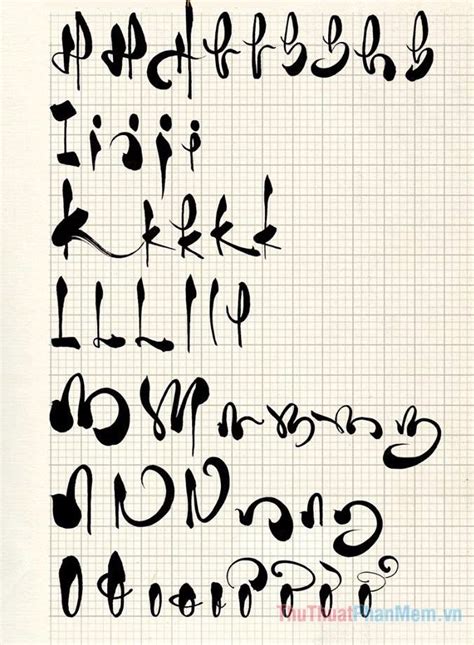 H H H h h h h h h
I i i i i
K k k k k
L L L l l l
M M m m m m
N N N n n n
O O o o o
ThuThuatPhanMem.vn